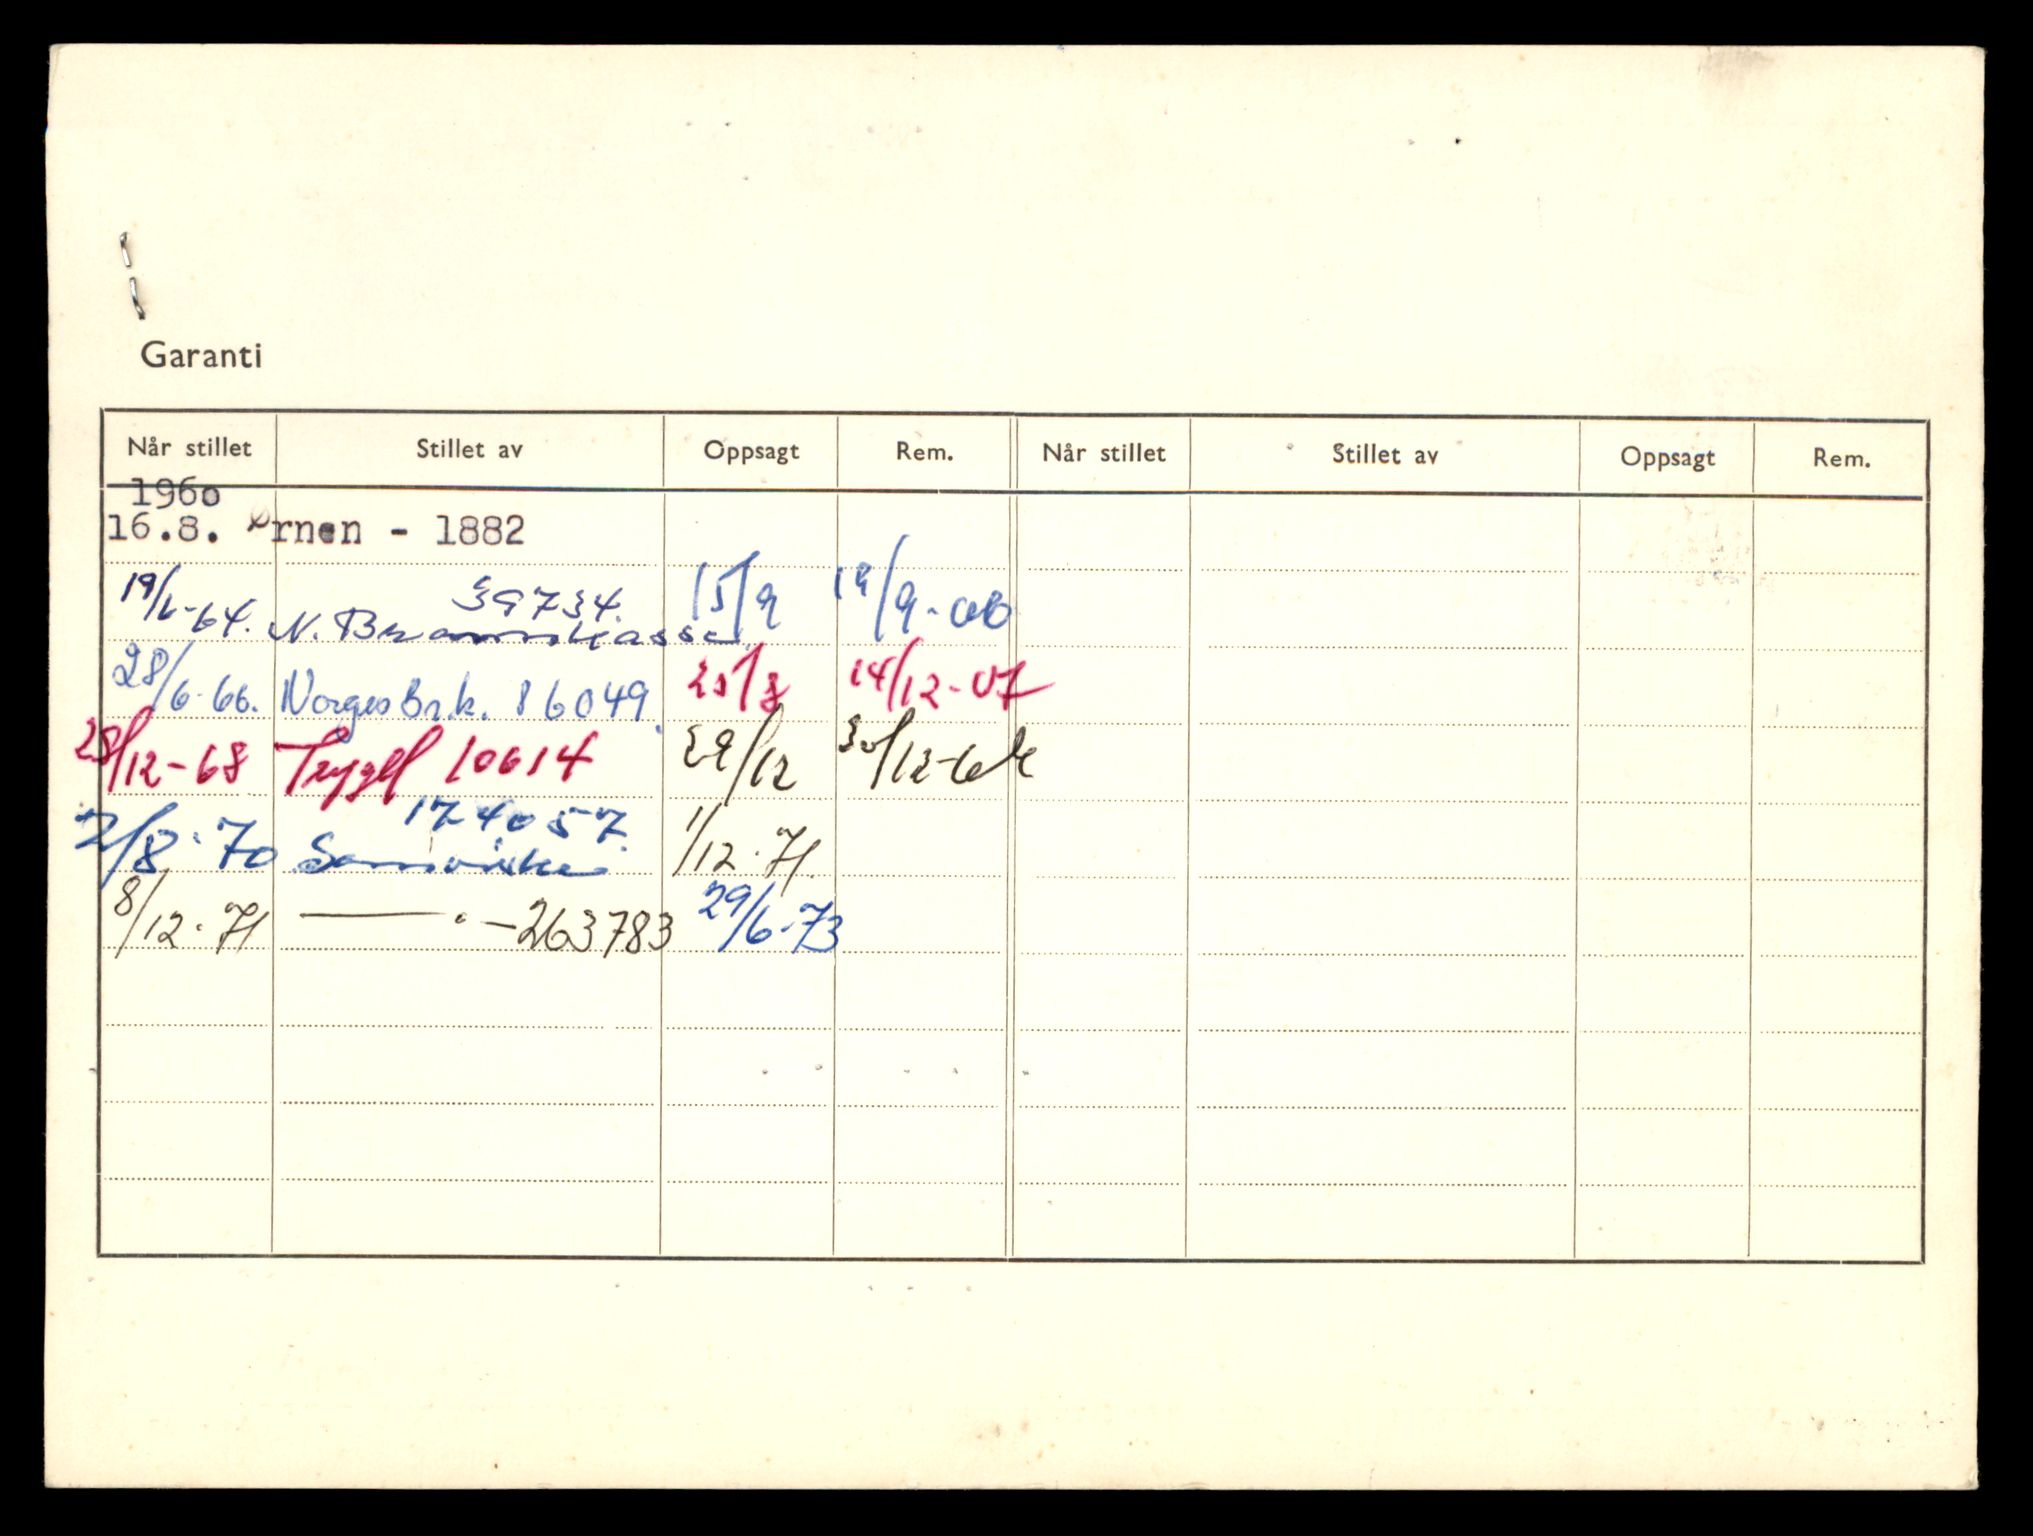 Garanti
Når stillet Stillet av Oppsagt Rem. Når stillet Stillet av Oppsagt Rem.
1960
16.8. Ørnen - 1882
39734.
19/6-64. N. Brannkasse 15/9 19/9-
28/6-66. Norges Br.k. 86049. 14/12-
28/12-68 Trygd 10614 29/12 30/12-
174057.
2/8-70 Samvirke 1/12-71.
8/12-71 — " — 263783 29/6-73